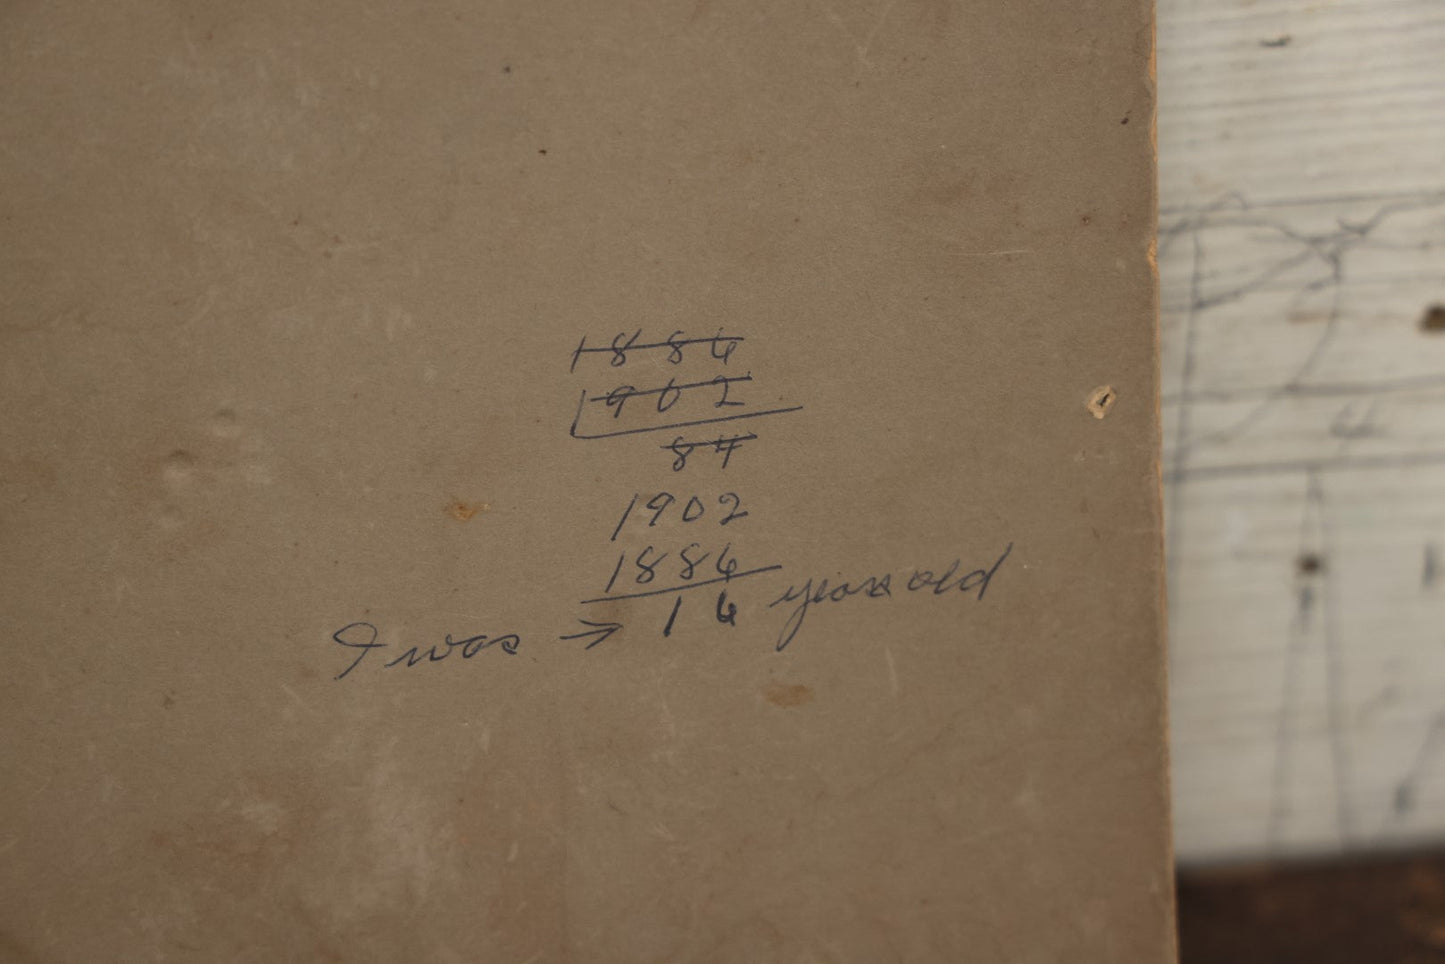 1886
1902
84
1902
1886
I was → 16 years old